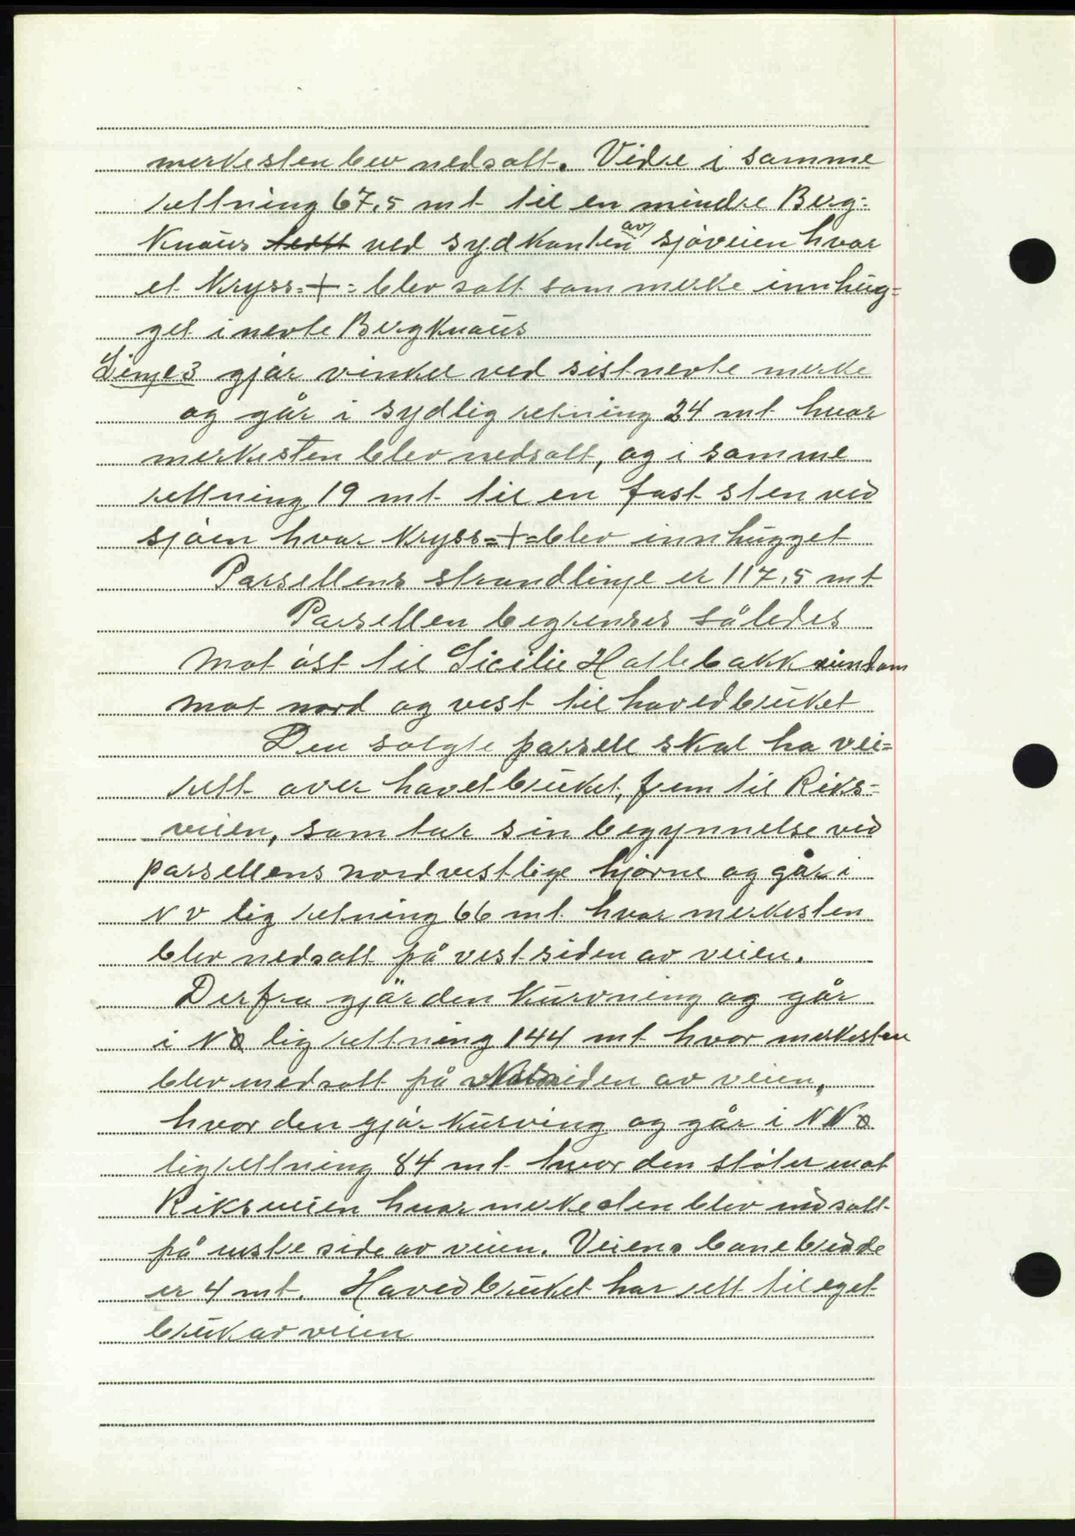 merkesten blev nedsatt. Vidre i samme
rettning 67,5 mt til en mindre Berg-
Knaus ved sydkanten av sjøveien hvor
et kryss =+= blev satt som merke innhug-
get i nevte Bergknaus
Linje 3 gjør vinkel ved sistnevte merke
og går i sydlig retning 24 mt hvor
merkesten blev nedsatt, og i samme
rettning 19 mt til en fast sten ved
sjøen hvor kryss =+= blev innhugget
Parsellens strandlinje er 117,5 mt
Parsellen begrenses således
Mot øst til Sicilie Hatlebakk eiendom
mot nord og vest til hovedbruket
Den solgte parsell skal ha vei=
rett over hovetbruket, frem til Riks-
veien, som tar sin begynnelse ved
parsellens nordvestlige hjørne og går i
N V lig retning 66 mt hvor merkesten
blev nedsatt på vestsiden av veien.
Derfra gjør den kurvning og går
i NØ lig rettning 144 mt hvor merkesten
blev nedsatt på siden av veien,
hvor den gjør kurving og går i NNØ
lig rettning 84 mt hvor den støter mot
Riksveien hvor merkesten blev nedsatt
på østre side av veien. Veiens banebredde
er 4 mt. Hovedbruket har rett til eget
bruk av veien